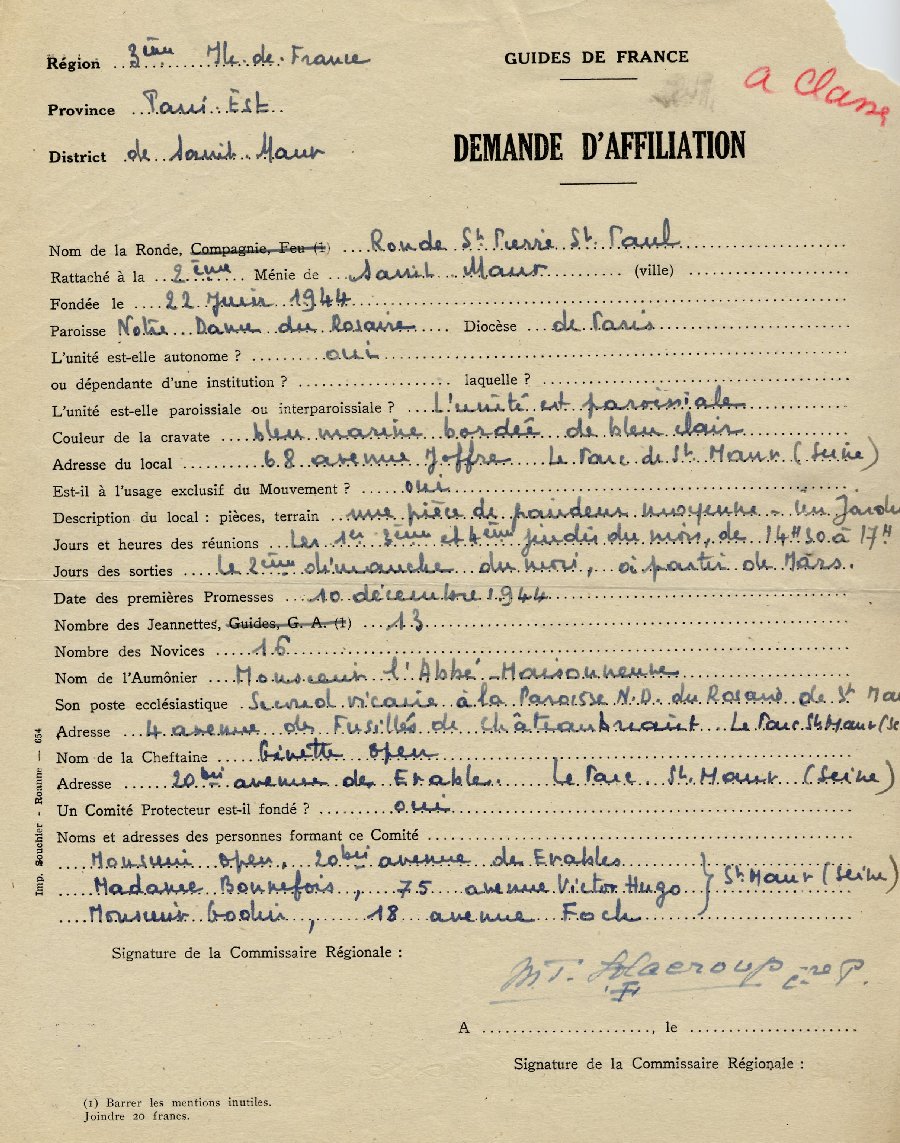 Région 3ème Ile de France
GUIDES DE FRANCE
A Classer
Province Paris Est
District de Saint Maur
DEMANDE D'AFFILIATION
Nom de la Ronde, Compagnie, Feu (1) Ronde St Pierre St Paul
Rattaché à la 2ème Ménie de Saint Maur (ville)
Fondée le 22 Juin 1944
Paroisse Notre Dame du Rosaire Diocèse de Paris
L'unité est-elle autonome ? oui
ou dépendante d'une institution ? laquelle ?
L'unité est-elle paroissiale ou interparoissiale ? L'unité est paroissiale
Couleur de la cravate bleu marine bordée de bleu clair
Adresse du local 68 avenue Joffre Le Parc de St Maur (Seine)
Est-il à l'usage exclusif du Mouvement ? oui
Description du local : pièces, terrain une pièce de grandeur moyenne - un Jardin
Jours et heures des réunions Les 1er 3ème et 4ème jeudis du mois, de 14H30 à 17H
Jours des sorties le 2ème dimanche du mois, à partir de Mars.
Date des premières Promesses 10 décembre 1944
Nombre des Jeannettes, Guides, G. A. (1) 13
Nombre des Novices 16
Nom de l'Aumônier Monsieur l'Abbé Maisonneuve
Son poste ecclésiastique Second vicaire à la Paroisse N.D. du Rosaire de St Mau
Adresse 4 avenue des Fusillés de Châteaubriant Le Parc St Maur (Se
Nom de la Cheftaine Ginette Open
Adresse 20bis avenue de Erable. Le Parc St Maur (Seine)
Un Comité Protecteur est-il fondé ? oui
Noms et adresses des personnes formant ce Comité
Monsieur Open, 20bis avenue des Erables
Madame Bonnefois, 75 avenue Victor Hugo } St Maur (Seine)
Monsieur Godin, 18 avenue Foch
Signature de la Commissaire Régionale :
M.T.
A , le
Signature de la Commissaire Régionale :
(1) Barrer les mentions inutiles.
Joindre 20 francs.
Imp. Souchier - Roanne — 654